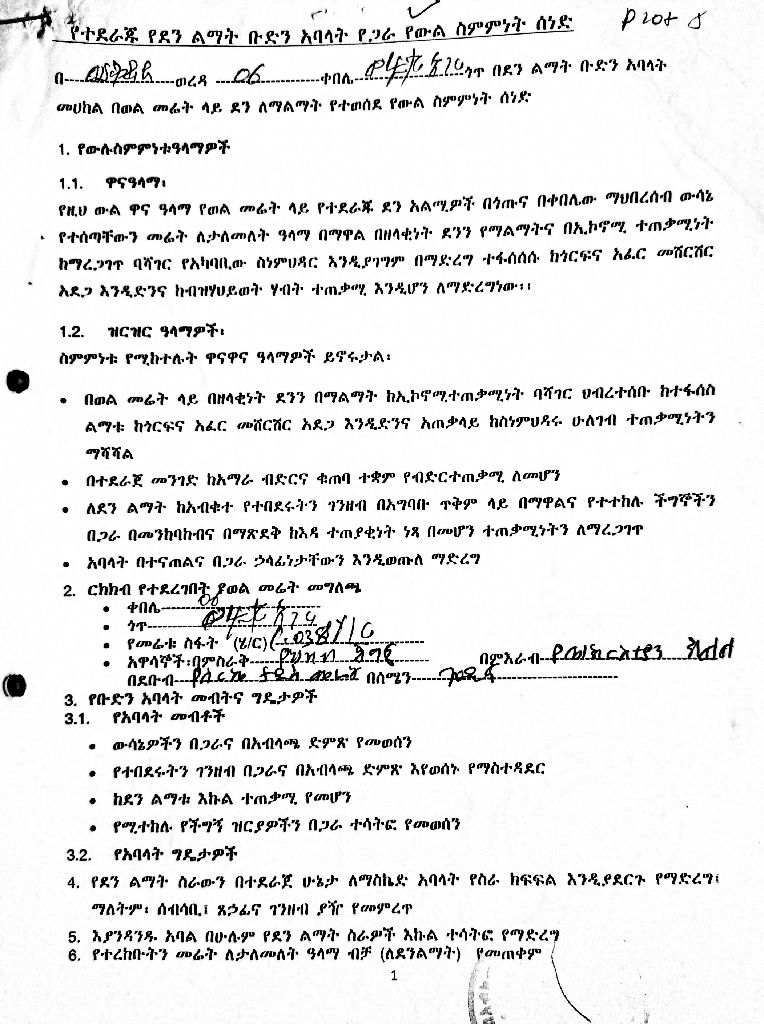 Plot 8
የተደራጁ የደን ልማት ቡድን አባላት የጋራ የውል ስምምነት ሰነድ
በ---ወረዳ ---06---ቀበሌ---ጎጥ በደን ልማት ቡድን አባላት
መሀከል በወል መሬት ላይ ደን ለማልማት የተወሰደ የውል ስምምነት ሰነድ
1. የውሉስምምነቱዓላማዎች
1.1. ዋናዓላማ፡
የዚህ ውል ዋና ዓላማ የወል መሬት ላይ የተደራጁ ደን አልሚዎች በጎጡና በቀበሌው ማህበረሰብ ውሳኔ
የተሰጣቸውን መሬት ለታለመለት ዓላማ በማዋል በዘላቂነት ደንን የማልማትና በኢኮኖሚ ተጠቃሚነት
ከማረጋገጥ ባሻገር የአካባቢው ስነምህዳር እንዲያገግም በማድረግ ተፋሰሰሱ ከጎርፍና አፈር መሸርሸር
አደጋ እንዲድንና ከብዝሃህይወት ሃብት ተጠቃሚ እንዲሆን ለማድረግነው፡፡
1.2. ዝርዝር ዓላማዎች፡
ስምምነቱ የሚከተሉት ዋናዋና ዓላማዎች ይኖሩታል፡
• በወል መሬት ላይ በዘላቂነት ደንን በማልማት ከኢኮኖሚተጠቃሚነት ባሻገር ህብረተሰቡ ከተፋሰስ
ልማቱ ከጎርፍና አፈር መሸርሸር አደጋ እንዲድንና አጠቃላይ ከስነምህዳሩ ሁለገብ ተጠቃሚነትን
ማሻሻል
• በተደራጀ መንገድ ከአማራ ብድርና ቁጠባ ተቋም የብድርተጠቃሚ ለመሆን
• ለደን ልማት ከአብቁተ የተበደሩትን ገንዘብ በአግባቡ ጥቅም ላይ በማዋልና የተተከሉ ችግኞችን
በጋራ በመንከባከብና በማጽደቅ ከእዳ ተጠያቂነት ነጻ በመሆን ተጠቃሚነትን ለማረጋገጥ
• አባላት በተናጠልና በጋራ ኃላፊነታቸውን እንዲወጡለ ማድረግ
2. ርክክብ የተደረገበት ያወል መሬት መግለጫ
• ቀበሌ---06---
• ጎጥ---
• የመሬቱ ስፋት (ሄ/ር)---
• አዋሳኞች፡በምስራቅ--- በምእራብ---
በደቡብ--- በሰሜን---
3. የቡድን አባላት መብትና ግዴታዎች
3.1. የአባላት መብቶች
• ውሳኔዎችን በጋራና በአብላጫ ድምጽ የመወሰን
• የተበደሩትን ገንዘብ በጋራና በአብላጫ ድምጽ እየወሰኑ የማስተዳደር
• ከደን ልማቱ እኩል ተጠቃሚ የመሆን
• የሚተከሉ የችግኝ ዝርያዎችን በጋራ ተሳትፎ የመወሰን
3.2. የአባላት ግዴታዎች
4. የደን ልማት ስራውን በተደራጀ ሁኔታ ለማስኬድ አባላት የስራ ክፍፍል እንዲያደርጉ የማድረግ፤
ማለትም፡ ሰብሳቢ፤ ጸኃፊና ገንዘብ ያዥ የመምረጥ
5. እያንዳንዱ አባል በሁሉም የደን ልማት ስራዎች እኩል ተሳትፎ የማድረግ
6. የተረከቡትን መሬት ለታለመለት ዓላማ ብቻ (ለደንልማት) የመጠቀም
1